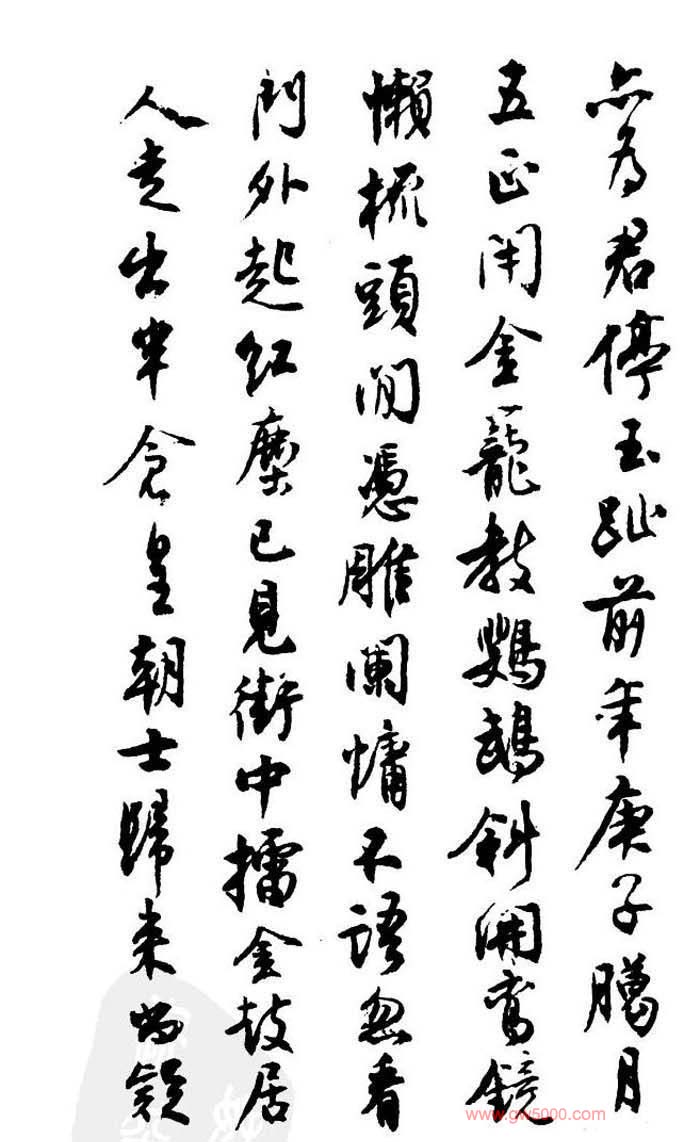 亦為君停玉趾前年庚子臘月
五正閉金籠教鸚鵡斜開鸞鏡
懶梳頭閒憑雕闌慵不語忽看
門外起紅塵已見街中擂金鼓居
人走出半倉皇朝士歸来尚疑
www.gw5000.com